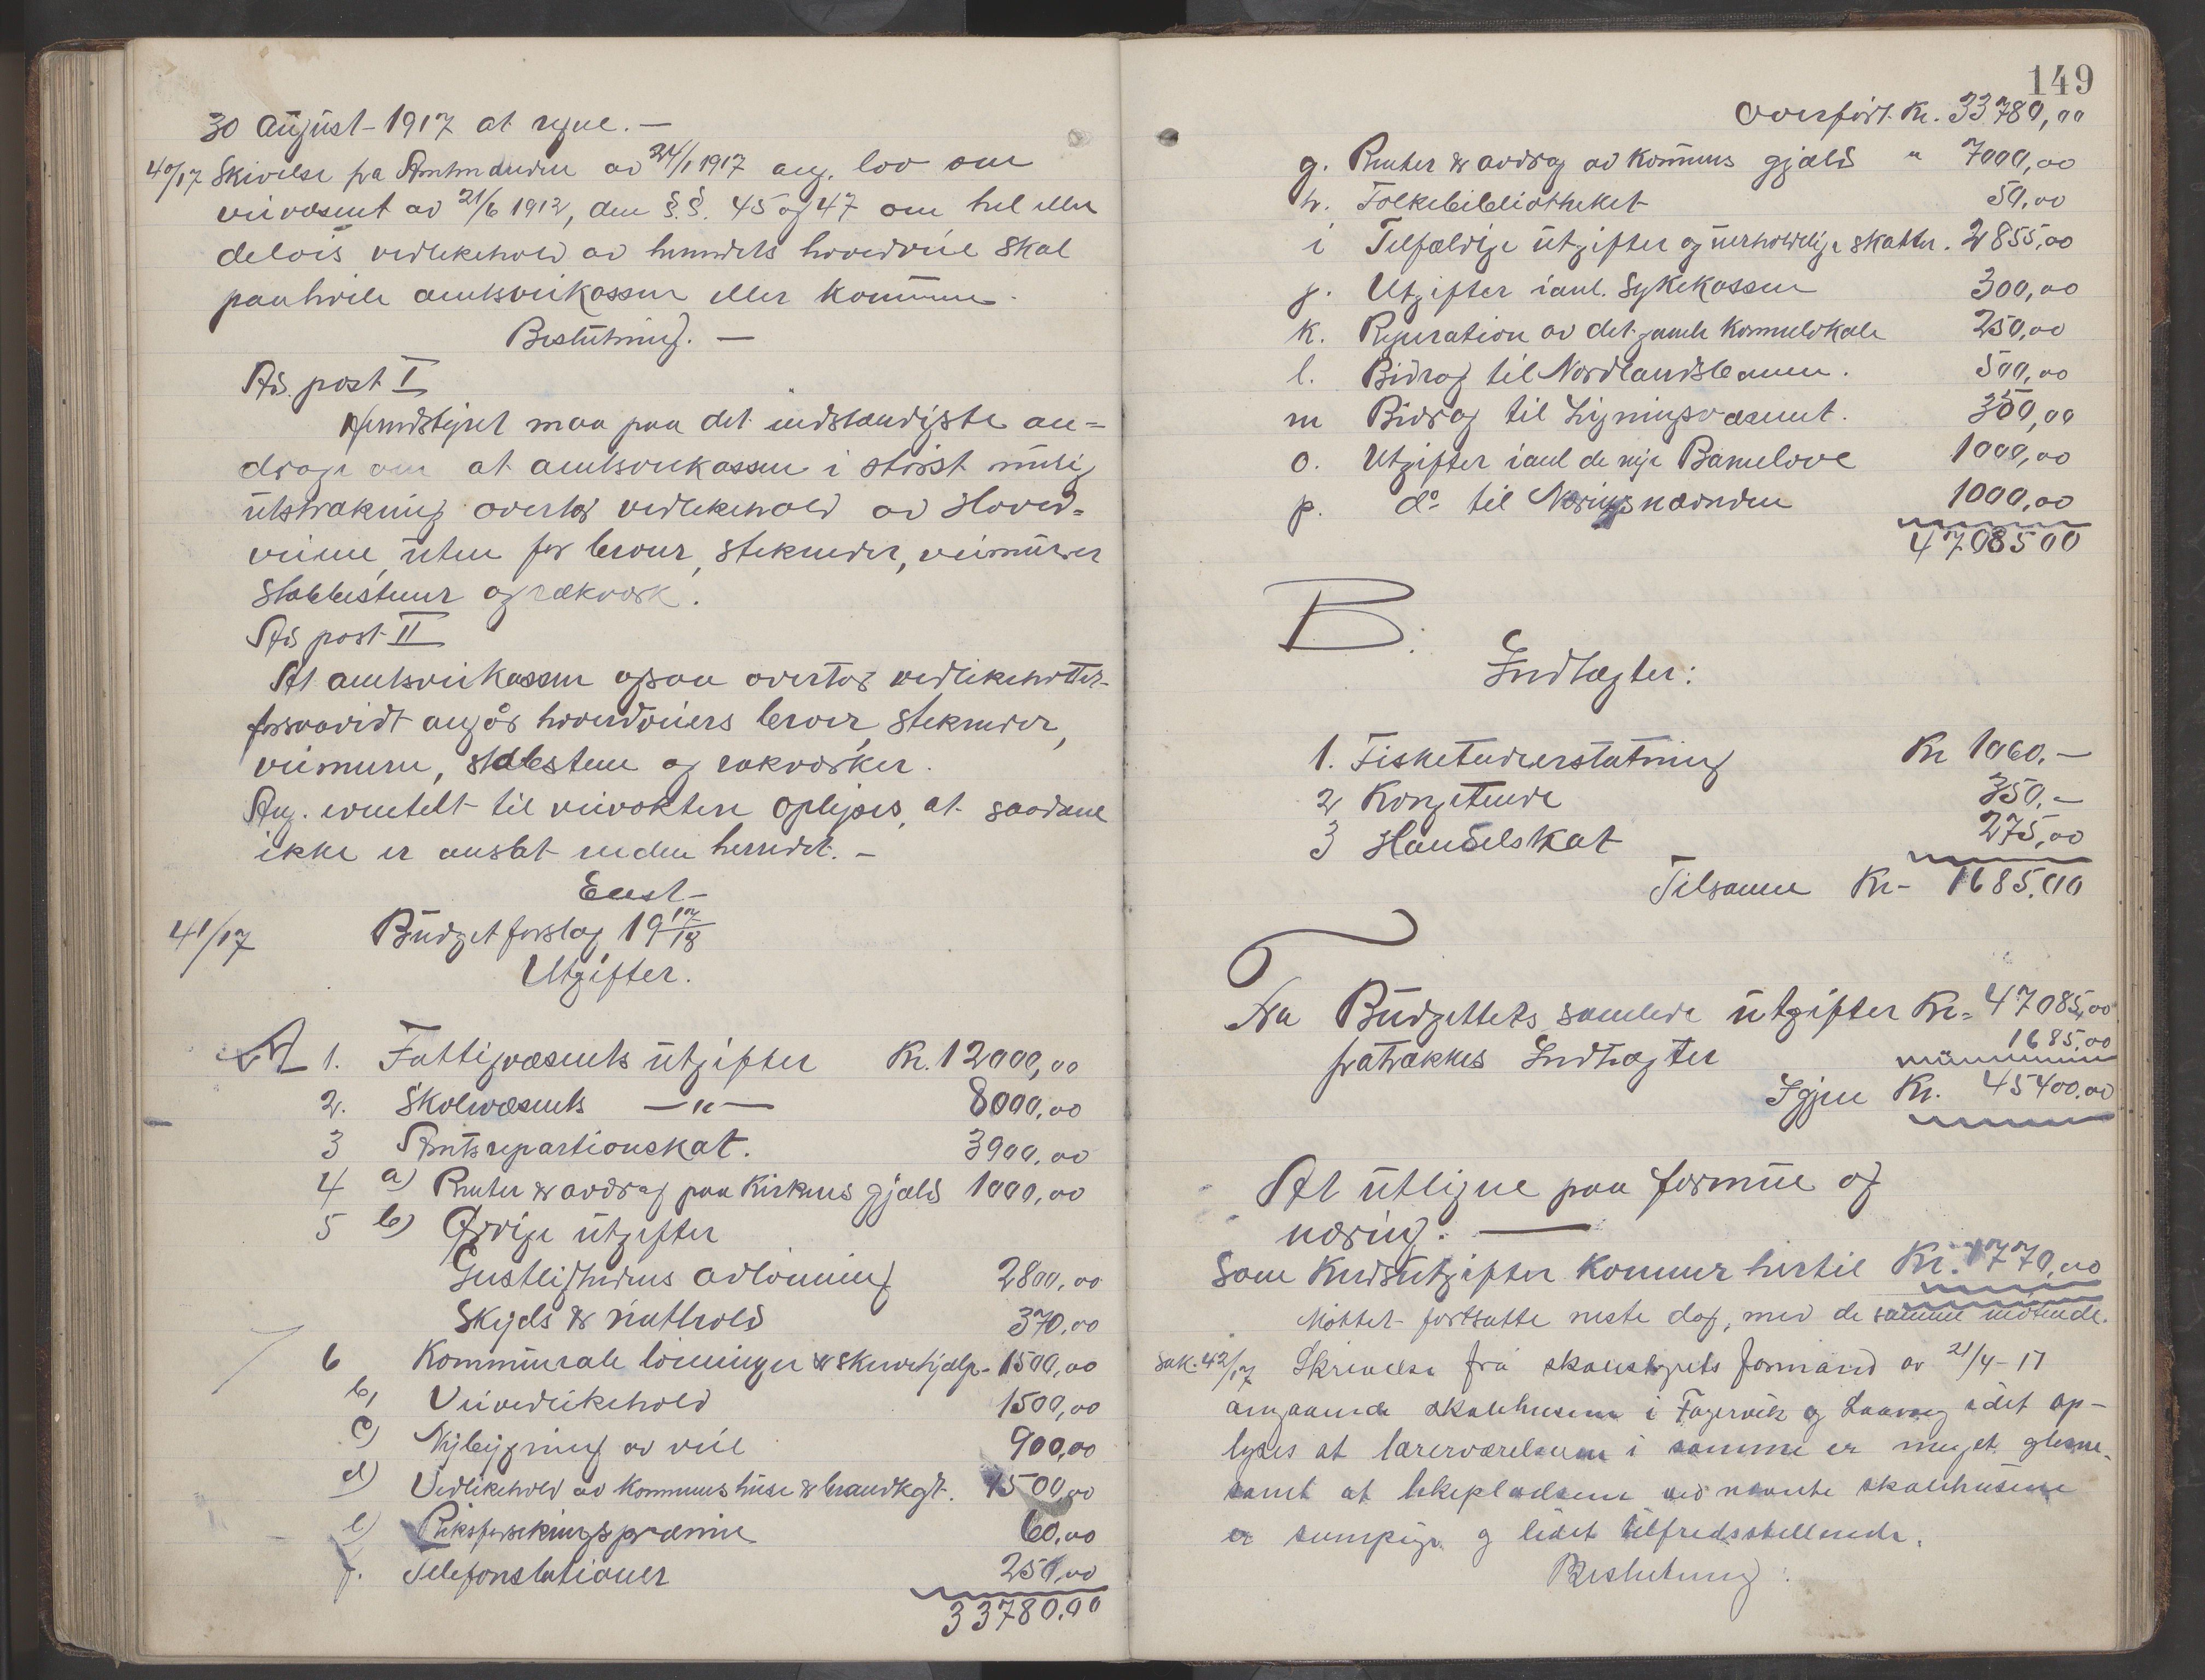 30 August - 1917 at regne. —
40/17 Skrivelse fra Amtmanden av 24/1 1917 ang. lov om
veivæsenet av 21/6 1912, den §.§. 45 og 47 om hel eller
delvis vedlikehold av herredets hovedveie skal
paahvile amtsveikassen eller kommunen.
Beslutning. —
Ad. post I
Herredstyret maa paa det indstændigste an=
drage om at amtsveikassen i størst mulig
utstrækning overtar vedlikehold av Hoved=
veiene, uten for broer, stikrender, veimurer
stabbestener og rækverk.
Ad post II
At amtsveikassen ogsaa overtar vedlikeholdet
forsaavidt angår hovedveiers broer, stikrender,
veimurer, stabestene og rækverker.
Ang. eventuelt til veivoktere oplyses, at saadane
ikke er ansat inden herredet. —
Enst—
41/17 Budgetforslag 19 17/18
Utgifter.
A 1. Fattigvæsenets utgifter Kr. 12000,00
2. Skolevæsenets —"— 8000,00
3 Amtsrepartionskat. 3900,00
4 a) Renter & avdrag paa Kirkens gjæld 1000,00
5 b) Øvrige utgifter
Geistlighedens avlønning 2800,00
Skyds & nathold 370,00
6 Kommunale lønninger & skrivehjælp - 1500,00
b) Veivedlikehold 1500,00
c) Nybygning av veie 900,00
d) Vedlikehold av Kommunens huse & brandkgt. 1500,00
e) Riksforsikringspræmie 60,00
f. Telefonstationer 250,00
33780,00
149
Overført. Kr. 33780,00
g. Renter & avdrag av Komuns gjæld " 7000,00
h. Folkebibliotheket 50,00
i Tilfældige utgifter og uerholdelige skatter. 2855,00
j. Utgifter ianl. Sykekassen 300,00
k. Reparation av det gamle Komunelokale 250,00
l. Bidrag til Nordlandsbanen. 500,00
m Bidrag til Ligningsvæsenet. 350,00
o. Utgifter ianl de nye Barnelove 1000,00
p. do til Næringsnævnden 1000,00
4708500
B:
Indtægter:
1. Fisketiendeerstatning Kr 1060.—
2 Kongetiende 350.—
3 Handelskat 275,00
Tilsamen Kr— 1685.00
Fra Budgettets samlede utgifter Kr= 47085,00
fratrækkes Indtægter 1685,00
Igjen Kr. 45400.00
At utligne paa formue og
næring. —
Som Kredsutgifter kommer hertil Kr. 1770,00
Møttet fortsatte neste dag, med de samme møtende.
Sak. 42/17 Skrivelse fra skolestyrets formand av 21/4-17
angaaende skolehusene i Fagervik og Laavong idet op-
lyses at lærerværelserne i samme er meget glesne.
samt at lekepladsene ved nævnte skolehusene
er sumpige og lidet tilfredsstillende.
Beslutning: